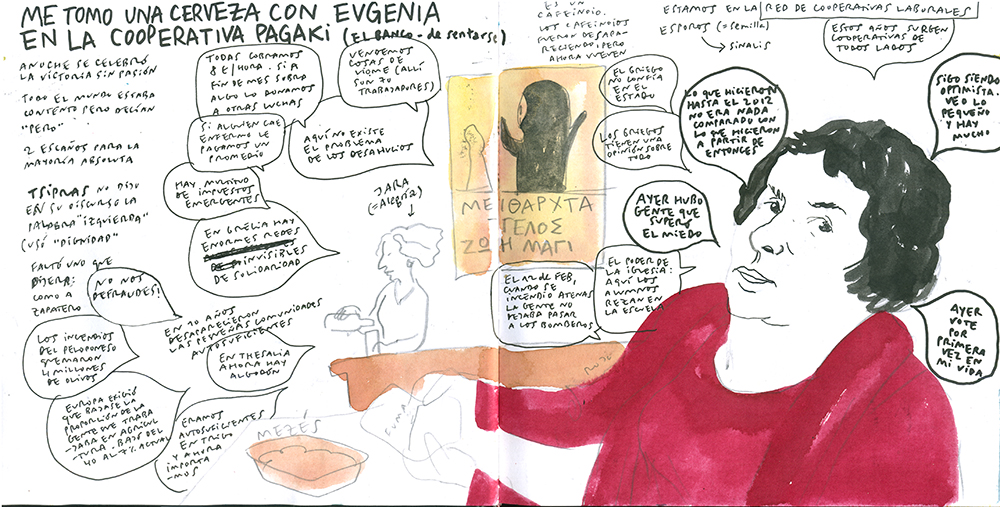 ME TOMO UNA CERVEZA CON EVGENIA
EN LA COOPERATIVA PAGAKI (EL BANCO - DE SENTARSE)
ANOCHE SE CELEBRÓ
LA VICTORIA SIN PASIÓN
TODO EL MUNDO ESTABA
CONTENTO PERO DECÍAN
"PERO"
2 ESCAÑOS PARA LA
MAYORÍA ABSOLUTA
TSIPRAS NO DIJO
EN SU DISCURSO LA
PALABRA "IZQUIERDA"
(USÓ "DIGNIDAD"
FALTÓ UNO QUE
DIJERA:
COMO A
ZAPATERO
NO NOS
DEFRAUDES!
TODAS COBRAMOS
8 €/HORA. SI A
FIN DE MES SOBRA
ALGO LO DONAMOS
A OTRAS LUCHAS
VENDEMOS
COSAS DE
VIOME (ALLÍ
SON 70
TRABAJADORES)
SI ALGUIEN CAE
ENFERMO LE
PAGAMOS UN
PROMEDIO
AQUÍ NO EXISTE
EL PROBLEMA
DE LOS DESAHUCIOS
HAY MULTITUD
DE IMPUESTOS
EMERGENTES
EN GRECIA HAY
ENORMES REDES
INVISIBLES
DE SOLIDARIDAD
JARA
(=ALEGRÍA)
LOS INCENDIOS
DEL PELOPONESO
QUEMARON
4 MILLONES
DE OLIVOS
EN 20 AÑOS
DESAPARECIERON
LAS PEQUEÑAS COMUNIDADES
AUTOSUFICIENTES
EN THESALIA
AHORA HAY
ALGODÓN
EUROPA EXIGIÓ
QUE BAJASE LA
PROPORCIÓN DE LA
GENTE QUE TRABA
-JABA EN AGRICUL
-TURA. BAJÓ DEL
40 AL 7% ACTUAL
ERAMOS
AUTOSUFICIENTES
EN TRIGO
Y AHORA
IMPORTA
-MOS
MEZÉS
ES UN
CAFEINOIO.
LOS CAFEINOIOS
FUERON DESAPA-
RECIENDO, PERO
AHORA VUELVEN
ESTAMOS EN LA RED DE COOPERATIVAS LABORALES
ESPOROS (=SEMILLA)
→ SINALIS
ESTOS AÑOS SURGEN
COOPERATIVAS DE
TODOS LADOS
EL GRIEGO
NO CONFÍA
EN EL
ESTADO
LOS GRIEGOS
TIENEN UNA
OPINIÓN SOBRE
TODO
LO QUE HICIERON
HASTA EL 2012
NO ERA NADA
COMPARADO CON
LO QUE HICIERON
A PARTIR DE
ENTONCES
SIGO SIENDO
OPTIMISTA.
VEO LO
PEQUEÑO
Y HAY
MUCHO
AYER HUBO
GENTE QUE
SUPERÓ
EL MIEDO
ΜΕΙΘΑΡΧΤΑ
ΓΕΛΟΣ
ΖΩΗ ΜΑΓΙ
EL 12 DE FEB,
CUANDO SE
INCENDIÓ ATENAS
LA GENTE NO
DEJABA PASAR
A LOS BOMBEROS
EL PODER DE
LA IGLESIA:
AQUÍ LOS
ALUMNOS
REZAN EN
LA ESCUELA
AYER
VOTÉ
POR
PRIMERA
VEZ EN
MI VIDA